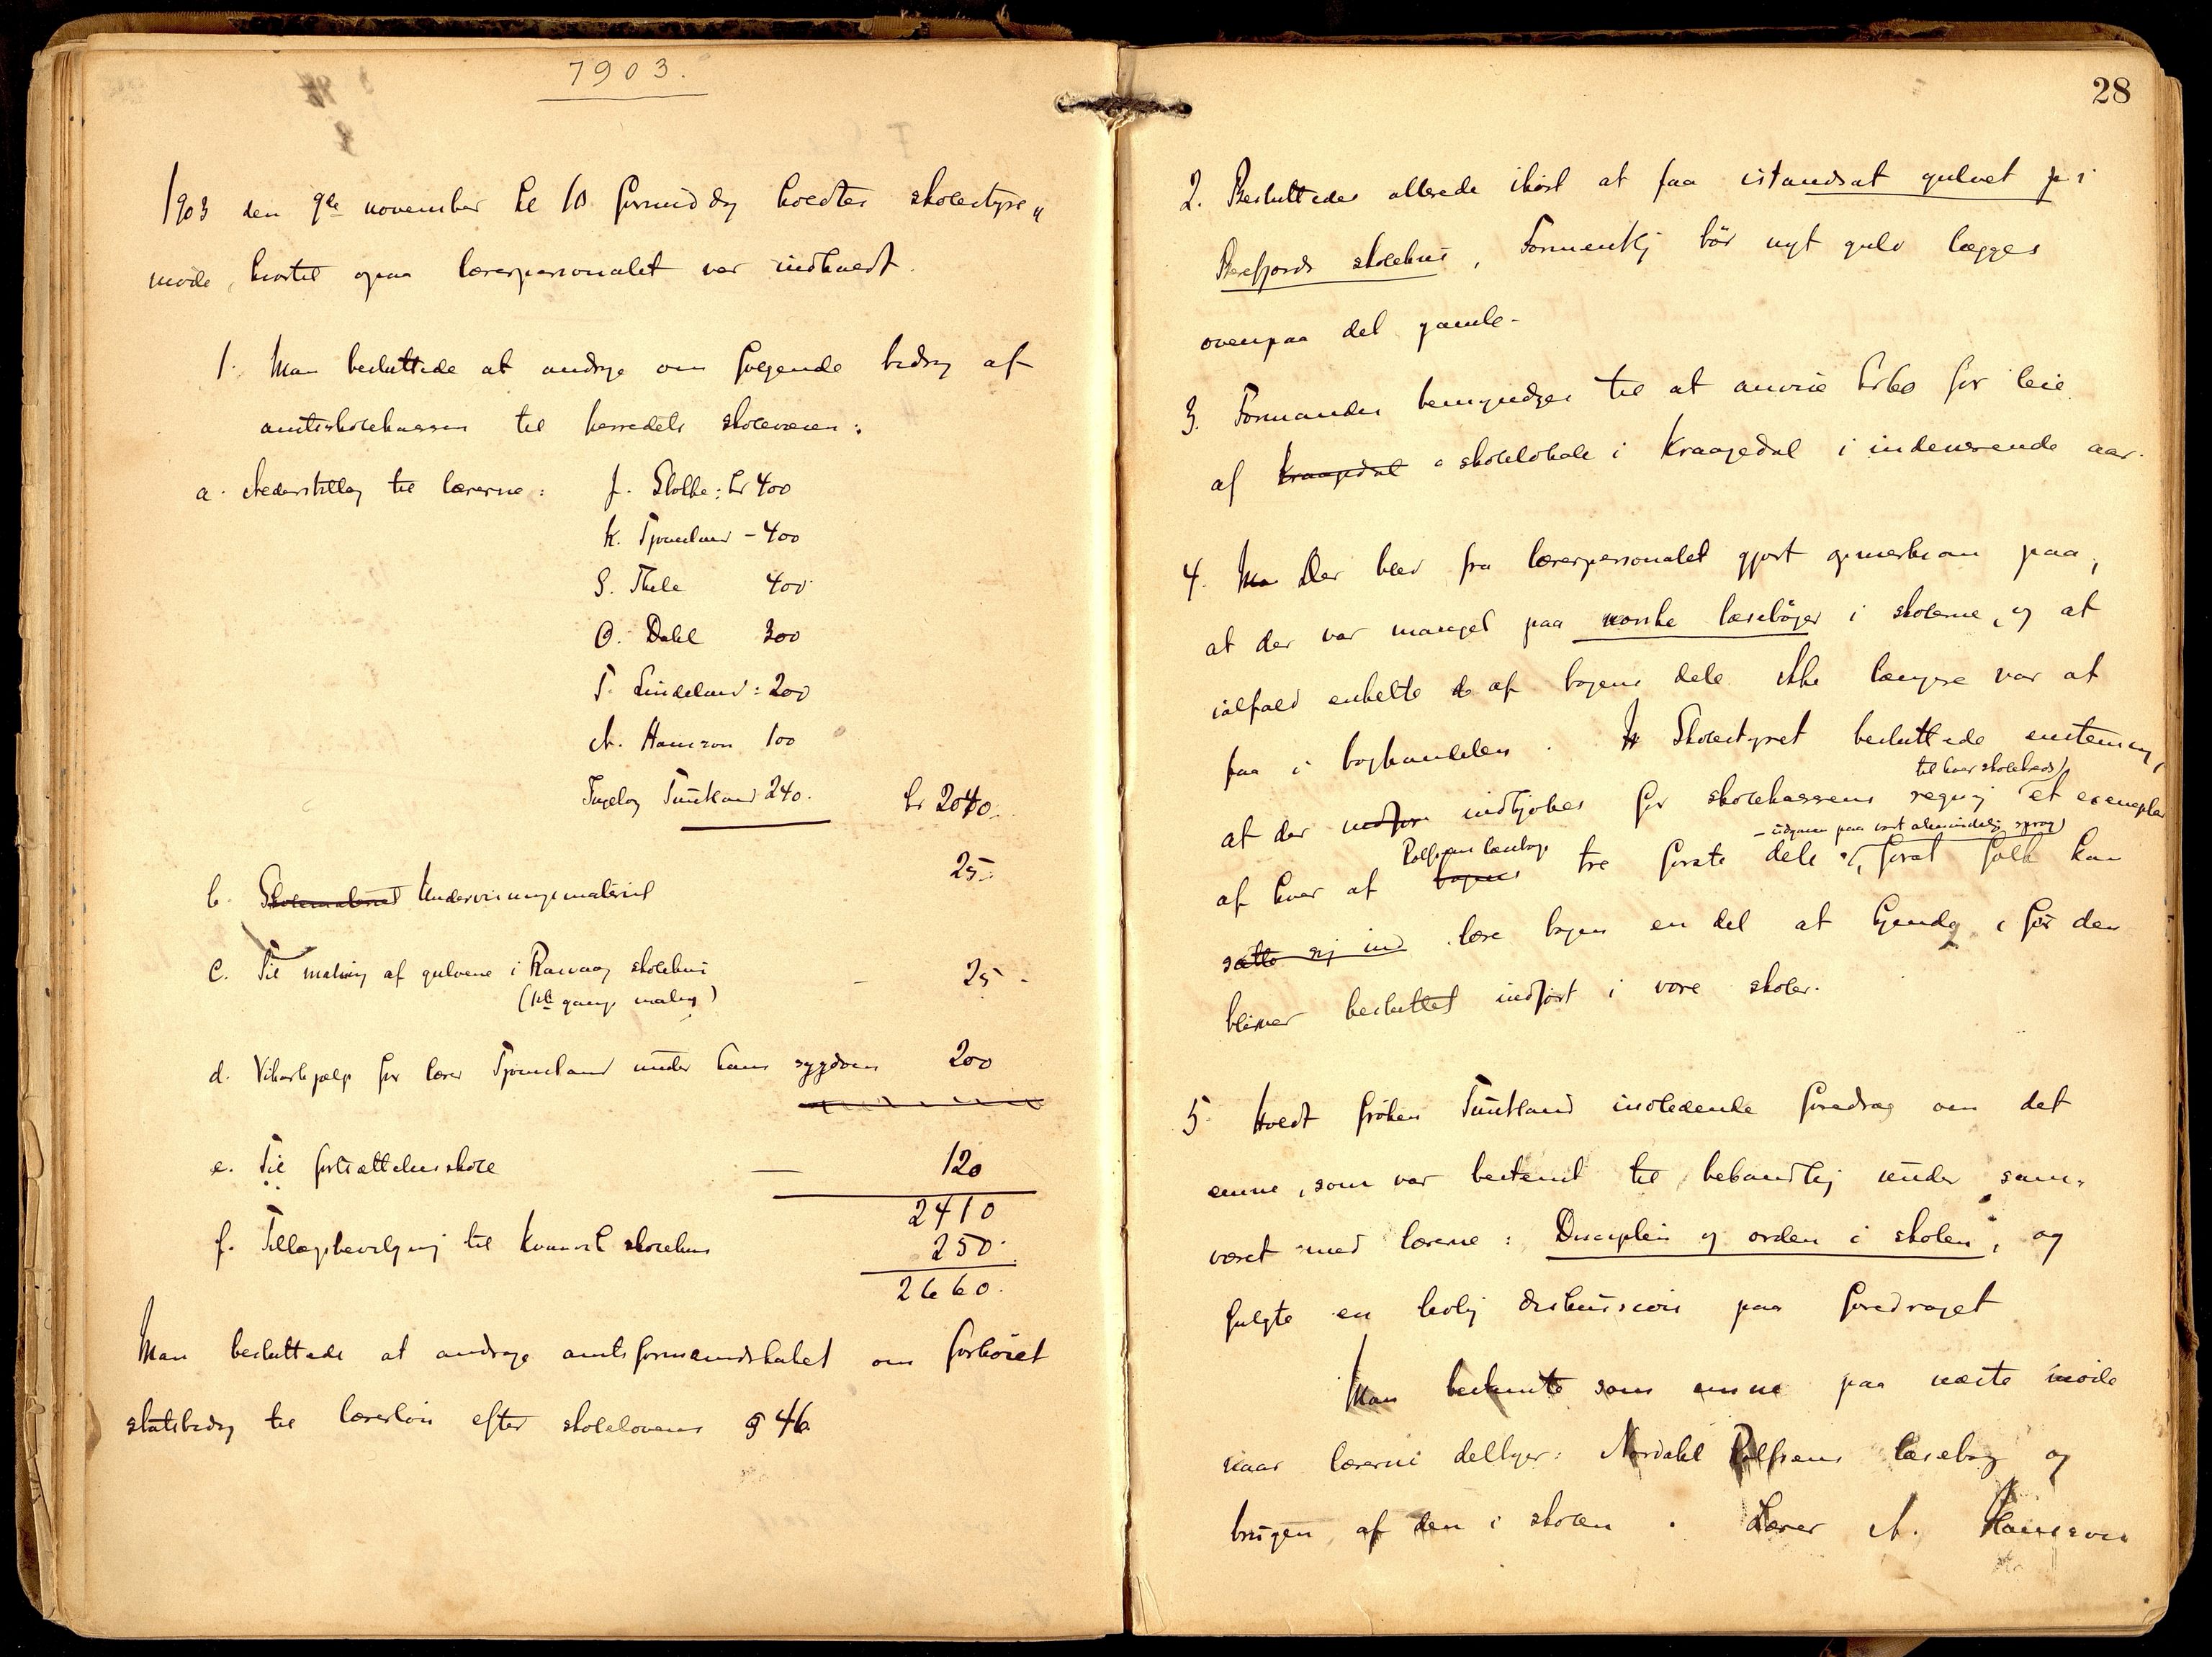 1903.
1903 den 9de november kl 10 formiddag holdtes skolestyre„
møde, hvortil ogsaa lærerpersonalet var indkaldt.
1. Man besluttede at andrage om følgende bidrag af
amtsskolekassen til herredets skolevæsen:
a. Alderstillæg til lærerne: J. Stolke: kr 400
K. Tjomsland - 400
S. Thele 400
O. Dahl 300
T. Lindeland: 200
A. Hansson 100
Ingeborg Tuntland 240. kr 2040.
b. Skolemateriel Undervisningsmateriel 25.-
c. Til maling af gulvene i Rasvaag skolehus - 25 -
(1ste gangs maling)
d. Vikarhjælp for lærer Tjomsland under hans sygdom 200
e. Til fortsættelsesskole — 120
2410
f. Tillægsbevilgning til skolehus 250.
2660.
Man besluttede at andrage amtsformandskabet om forhøiet
statsbidrag til lærerløn efter skolelovens § 46.
28
2. Besluttedes allerede ihøst at faa istandsat gulvet i
skolehus, Formentlig bør nyt gulv lægges
ovenpaa det gamle-
3. Formanden bemyndiges til at anvise kr 60 for leie
af Kraagedal skolelokale i Kraagedal i indeværende aar.
4. Ma Der blev fra lærerpersonalet gjort opmerksom paa,
at der var mangel paa norske læsebøger i skolerne, og at
ialfald enkelte d af bogens dele ikke længere var at
faa i boghandelen. Skolestyret besluttede enstemmig,
til hver skolekreds
at der indfør indkjøbes for skolekassens regning et exemplar
- udgaven paa vort almindelig sprog)
Rolfsens læsebogs
af hver af bogens tre første dele, forat folk kan
sætte sig ind lære bogen en del at kjende, før den
bliver besluttet indført i vore skoler.
5. Holdt frøken Tuntland indledende foredrag om det
emne, som var bestemt til behandling under sam-
været med lærerne: Disciplin og orden i skolen", og
fulgte en livlig diskussion paa foredraget
Man bestemte som emne paa næste møde
naar lærerne deltager: Nordahl Rolfsens læsebog og
brugen af den i skolen. Lærer A. Hansson